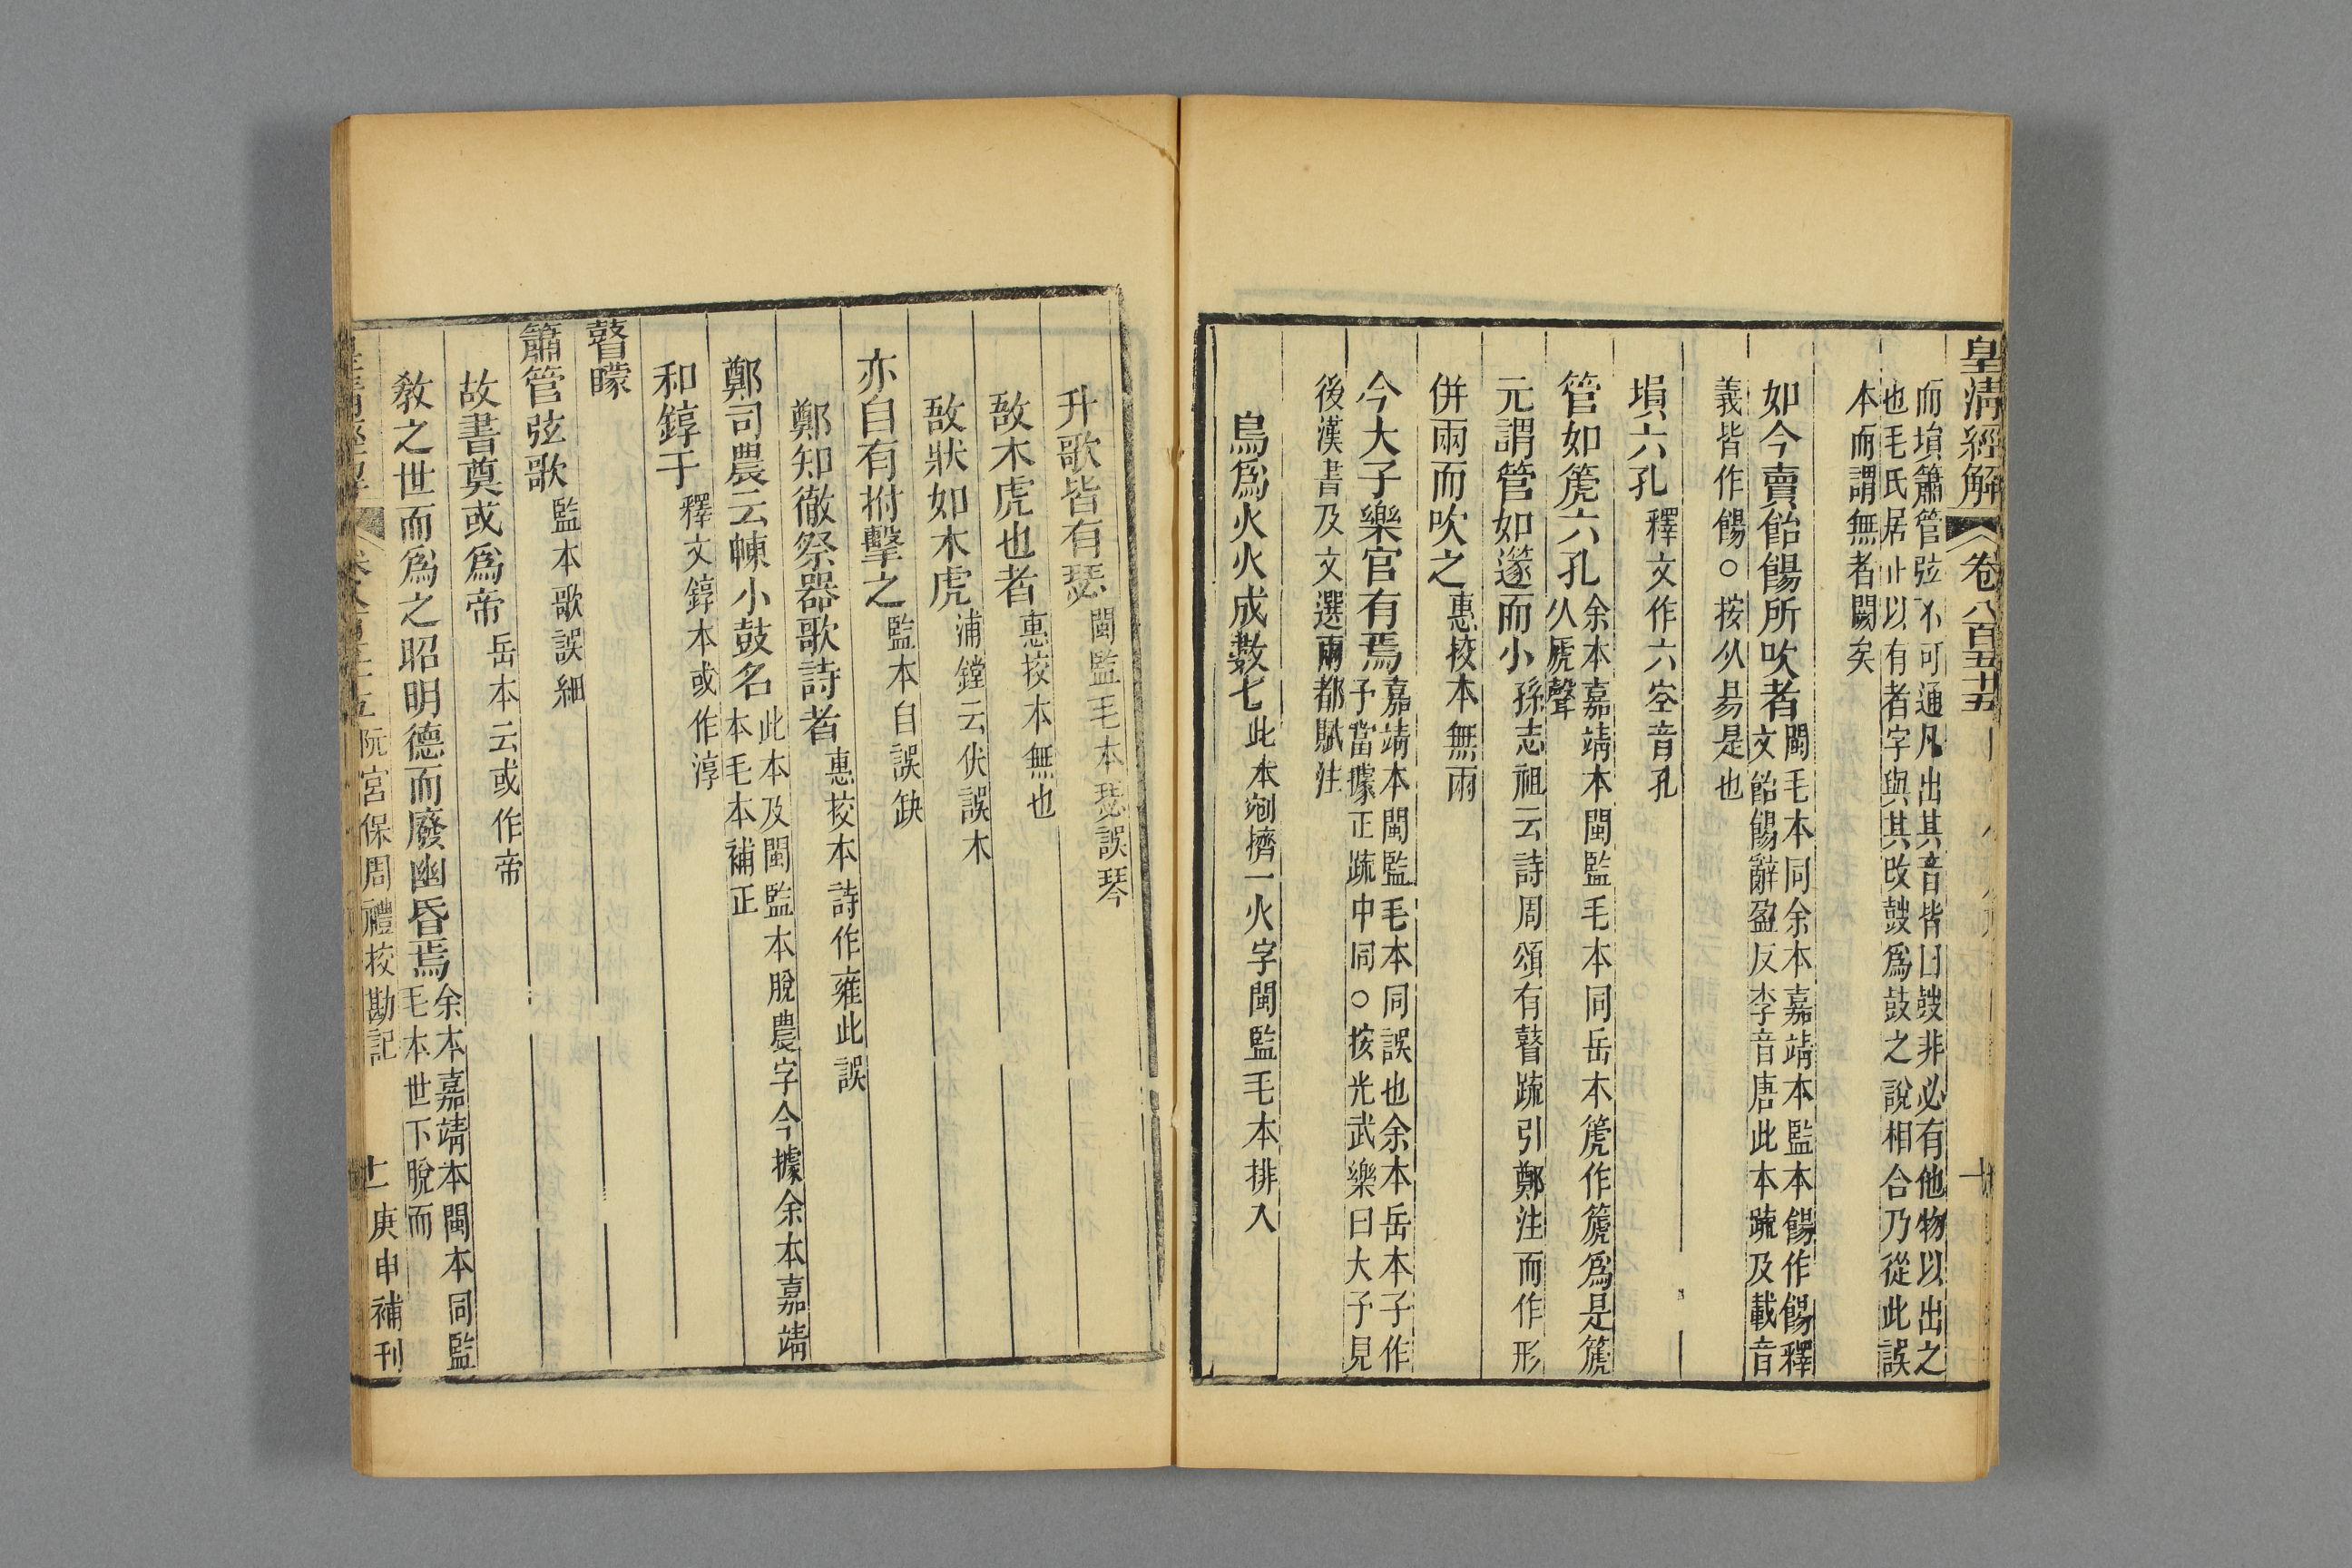 皇清經解 卷八百五十五 十
而塤簫管弦不可通凡出其音皆曰鼓非必有他物以出之
也毛氏居止以有者字與其改鼓爲鼓之說相合乃從此誤
本而謂無者闕矣
如今賣飴餳所吹者閩毛本同余本嘉靖本監本餳作餳釋
文飴餳辭盈反李音唐此本疏及載音
義皆作餳○按从昜是也
塤六孔釋文作六空音孔
管如篪六孔余本嘉靖本閩監毛本同岳本篪作篪爲是篪
从虒聲
元謂管如篴而小孫志祖云詩周頌有瞽疏引鄭注而作形
併兩而吹之惠挍本無兩
今大予樂官有焉嘉靖本閩監毛本同誤也余本岳本子作
予當據正疏中同○按光武樂曰大予見
後漢書及文選兩都賦注
鳥爲火火成數七此本剜擠一火字閩監毛本排入
升歌皆有瑟閩監毛本瑟誤琴
敔木虎也者惠挍本無也
敔狀如木虎浦鏜云伏誤木
亦自有拊擊之監本自誤缺
鄭知徹祭器歌詩者惠挍本詩作雍此誤
鄭司農云㯥小鼓名此本及閩監本脫農字今據余本嘉靖
本毛本補正
和錞于釋文錞本或作淳
瞽矇
簫管弦歌監本歌誤細
故書奠或爲帝岳本云或作帝
敎之世而爲之昭明德而廢幽昏焉余本嘉靖本閩本同監
毛本世下脫而
皇清經解 卷八百五十五 阮宮保周禮挍勘記 十一 庚申補刊